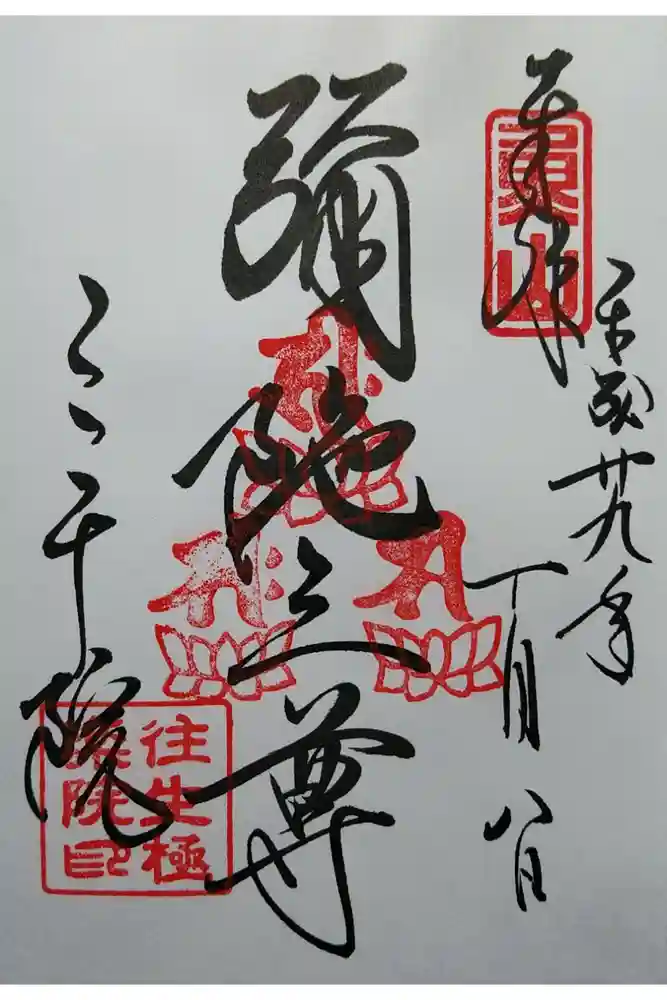 奉拝
平成廿九年
十月八日
彌陀三尊
三千院
往生極
樂院印